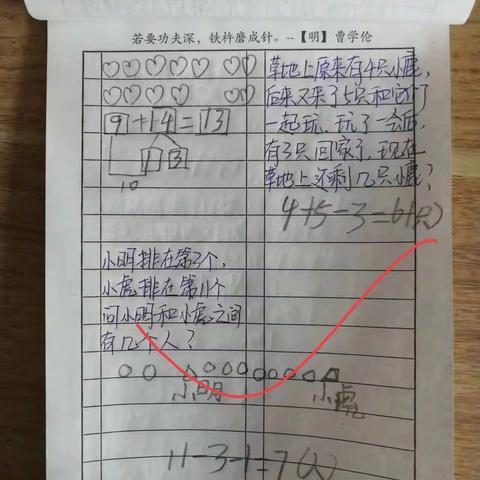 若要功夫深，铁杵磨成针。--【明】曹学伦
9+4=13
1 3
10
草地上原来有4只小鹿，
后来又来了5只和它们
一起玩，玩了一会后，
有3只回家了，现在
草地上还剩几只小鹿？
4+5-3=6(只)
小明排在第3个，
小虎排在第11个
问小明和小虎之间
有几个人？
小明 小虎
11-3-1=7(人)